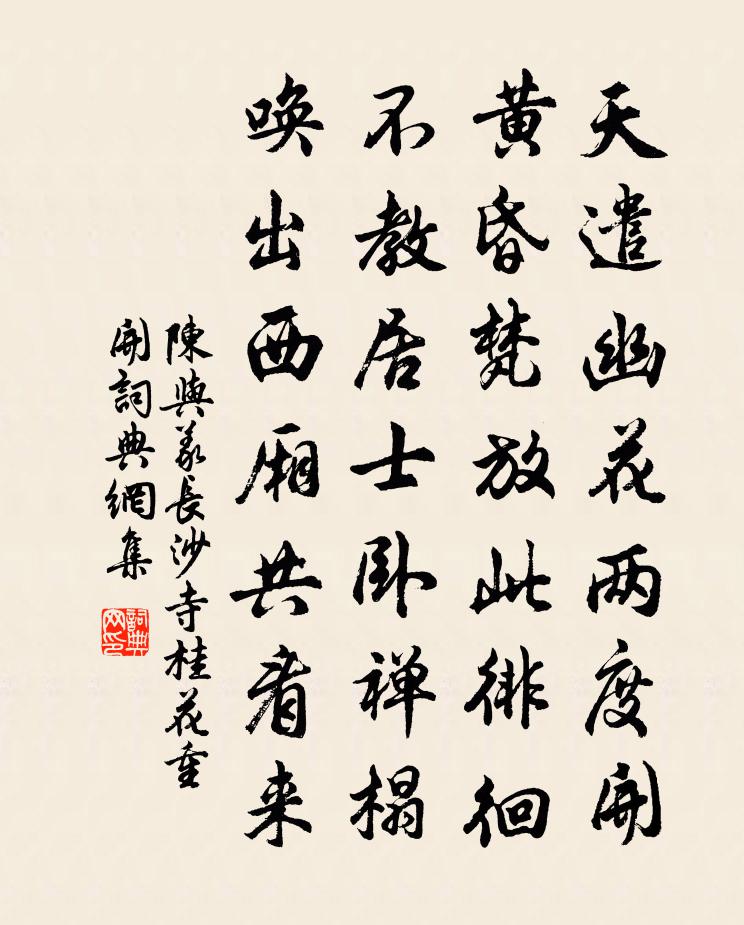 天遣幽花两度開
黄昏梵放此徘徊
不教居士卧禅榻
唤出西厢共看来
陳與義長沙寺桂花重
開詞典網集
詞典网印